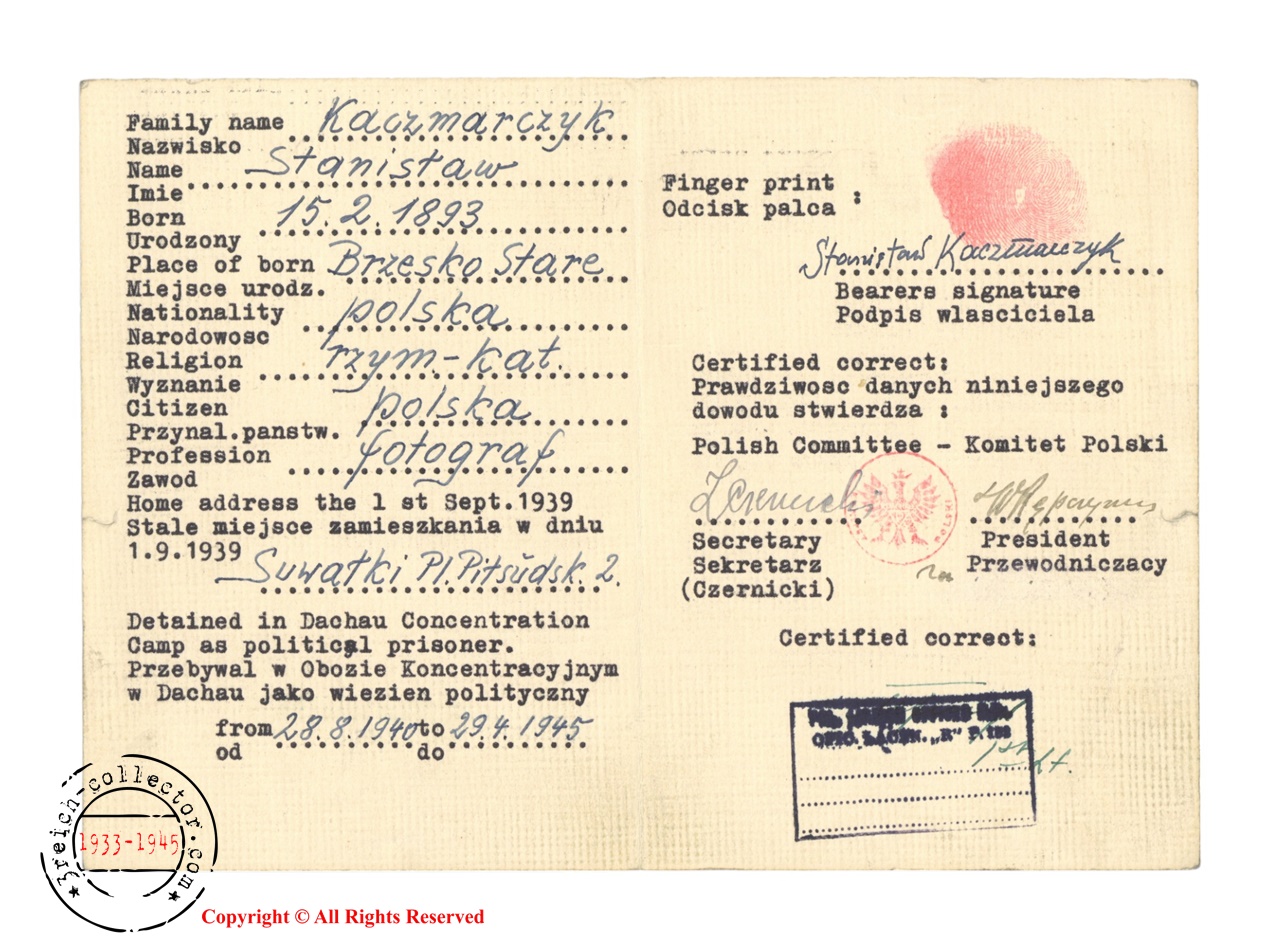 Family name Kaczmarczyk
Nazwisko
Name Stanisław
Imie
Born 15.2.1893
Urodzony
Place of born Brzesko Stare
Miejsce urodz.
Nationality polska
Narodowosc
Religion rzym-kat.
Wyznanie
Citizen polska
Przynal.panstw.
Profession fotograf
Zawod
Home address the 1 st Sept.1939
Stale miejsce zamieszkania w dniu
1.9.1939
Suwałki Pl.Piłsudsk. 2.
Detained in Dachau Concentration
Camp as political prisoner.
Przebywal w Obozie Koncentracyjnym
w Dachau jako wiezien polityczny
from 28.8.1940 to 29.4.1945
od do
Finger print :
Odcisk palca
Stanisław Kaczmarczyk
Bearers signature
Podpis wlasciciela
Certified correct:
Prawdziwosc danych niniejszego
dowodu stwierdza :
Polish Committee - Komitet Polski
Secretary President
Sekretarz Przewodniczacy
(Czernicki)
Certified correct:
OFIC. ŁACZN. „R"
3reich-collector.com
1933-1945
Copyright © All Rights Reserved